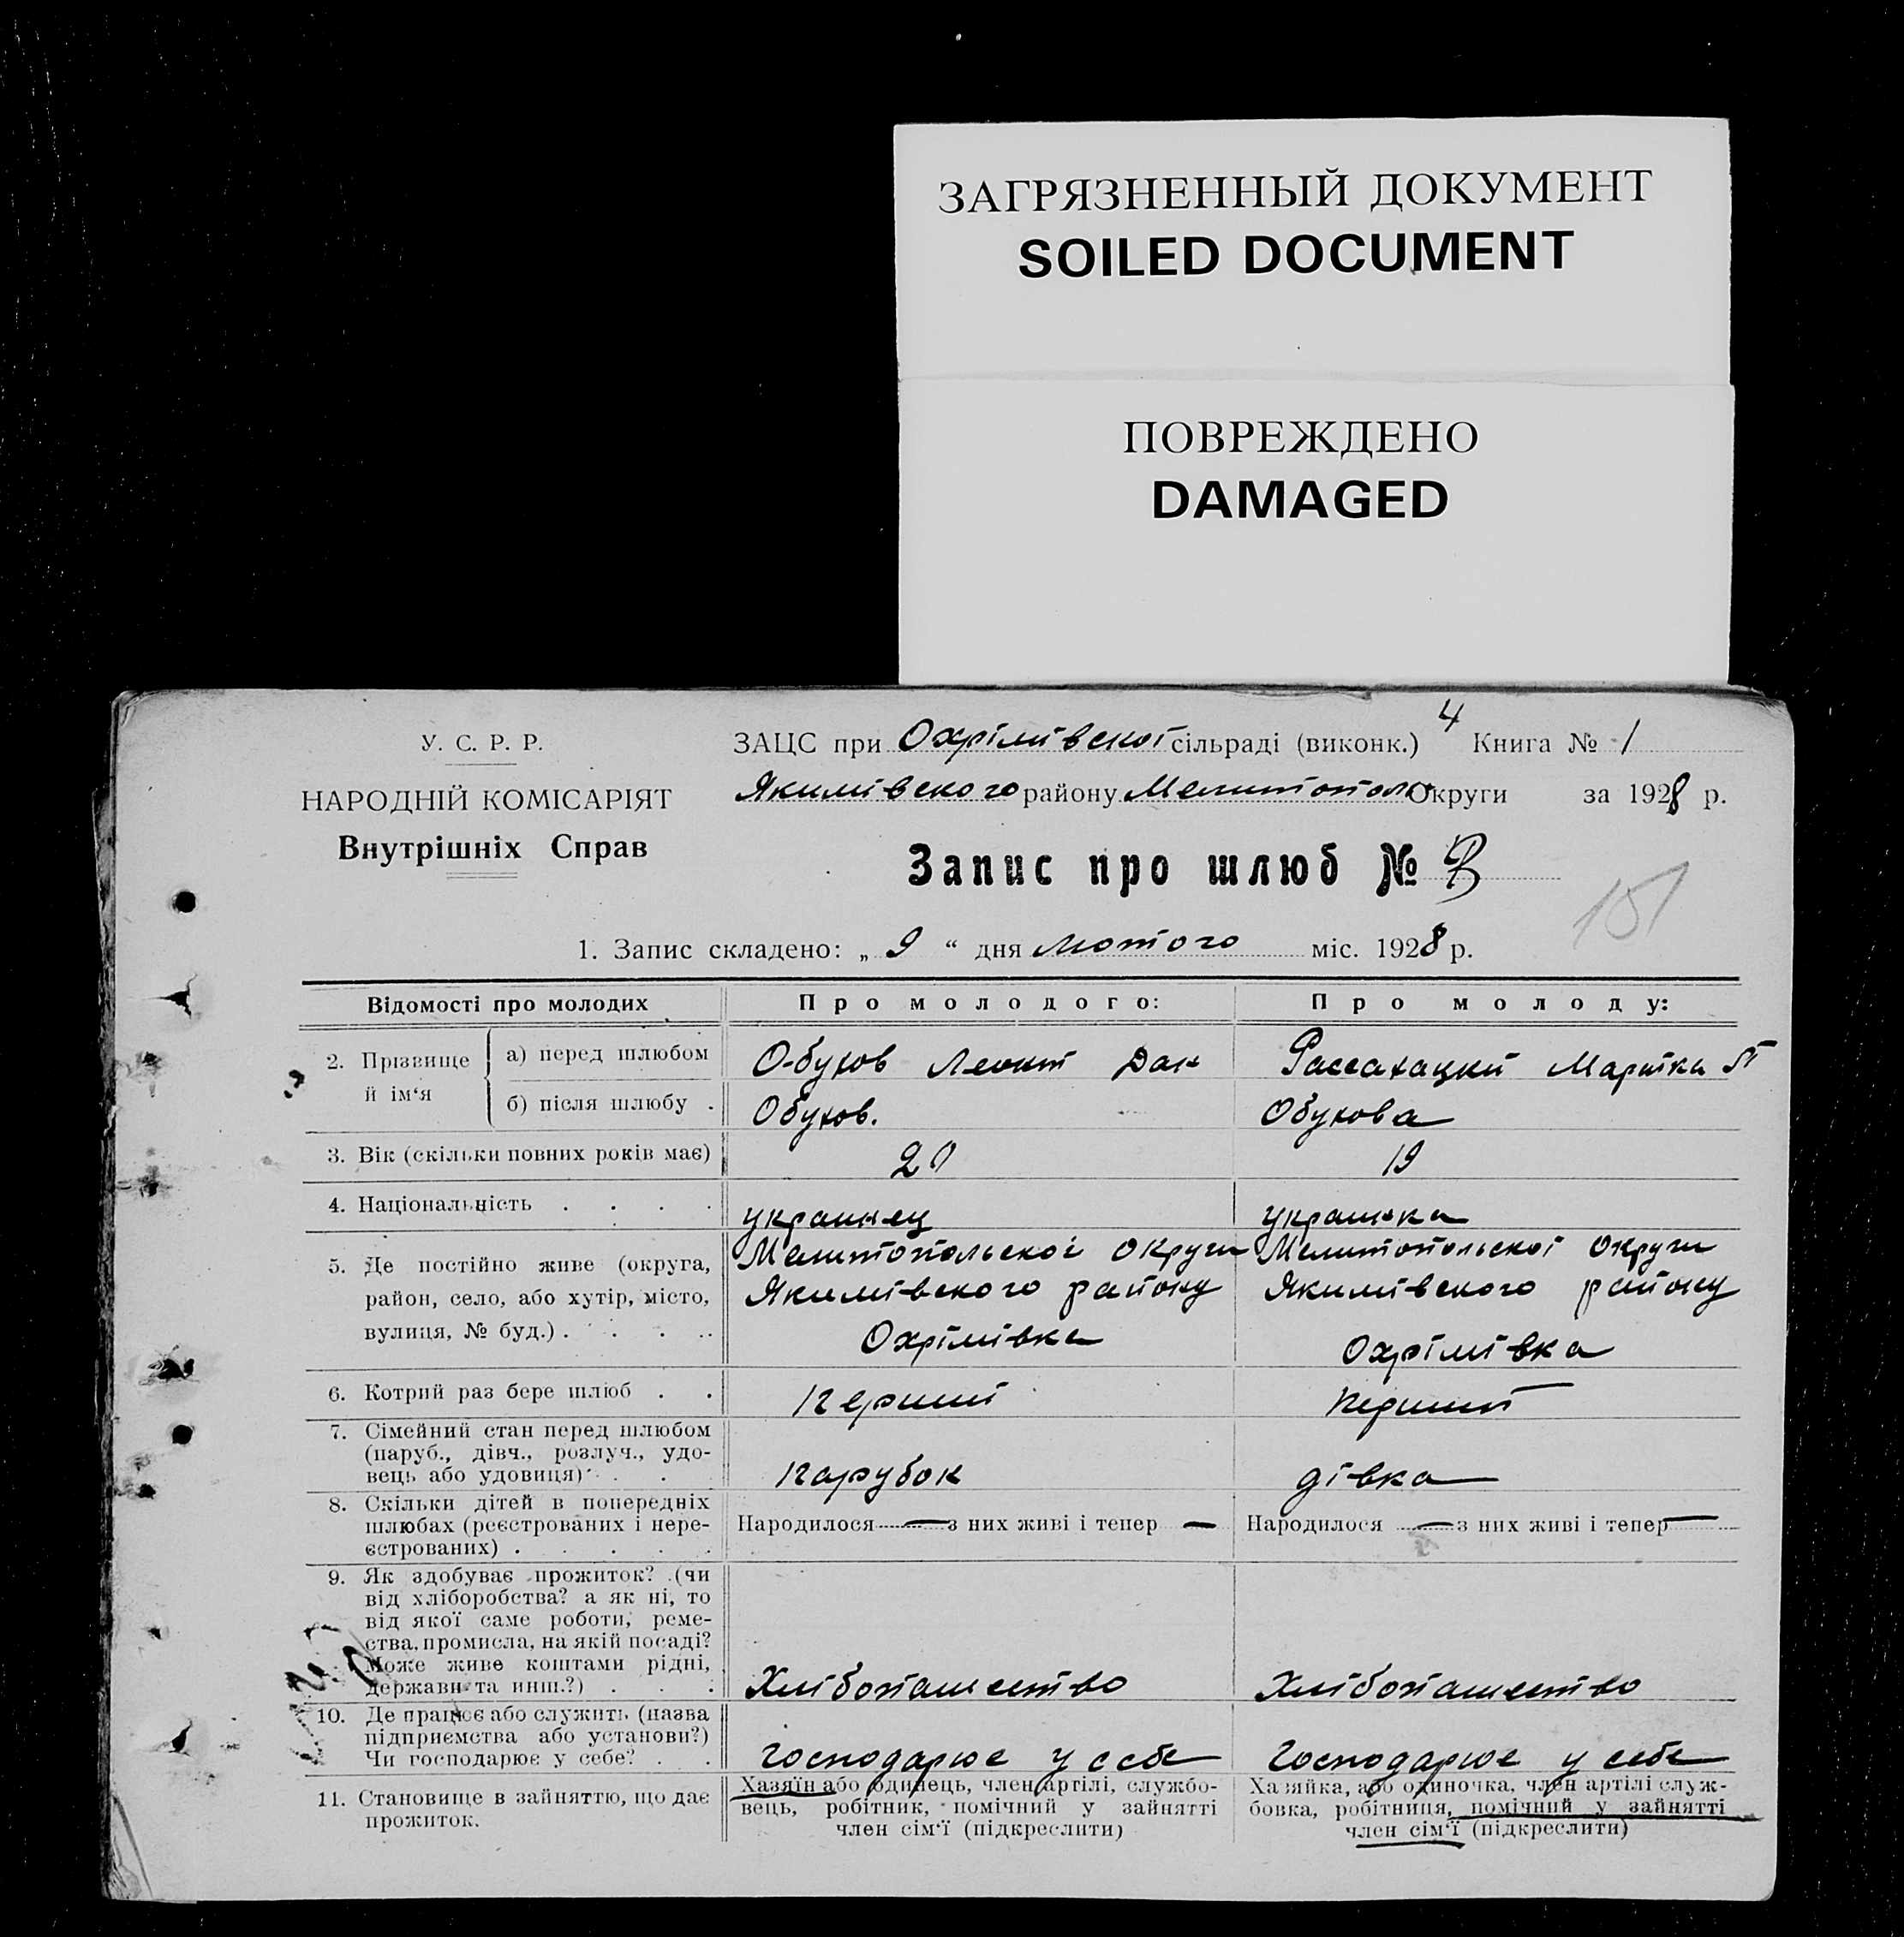 ЗАГРЯЗНЕННЫЙ ДОКУМЕНТ
SOILED DOCUMENT
ПОВРЕЖДЕНО
DAMAGED
У. С. Р. Р.
НАРОДНІЙ КОМІСАРІЯТ
Внутрішніх Справ
4
ЗАЦС при Охрімівської сільраді (виконк.) Книга № 1
Якимівського району Мелитополь Округи за 1928 р.
Запис про шлюб №
151
1. Запис складено: „ 9 “ дня лютого міс. 1928 р.
Відомості про молодих Про молодого: Про молоду:
2. Прізвище й ім‘я
а) перед шлюбом Обухов Леонт Дан Рассахацкий Марійка П
б) після шлюбу . Обухов. Обухова
3. Вік (скільки повних років має) 20 19
4. Національність . . . . украинец украинка
5. Де постійно живе (округа, Мелитопольської округи Мелитопольської округи
район, село, або хутір, місто, Якимівського району Якимівського району
вулиця, № буд.) . . . . Охрімівка Охрімівка
6. Котрий раз бере шлюб . . перший перший
7. Сімейний стан перед шлюбом
(паруб., дівч., розлуч., удо-
вець або удовиця) . . парубок дівка
8. Скільки дітей в попередніх
шлюбах (реєстрованих і нере- Народилося — з них живі і тепер — Народилося — з них живі і тепер —
єстрованих) . . . . .
9. Як здобуває прожиток? (чи
від хліборобства? а як ні, то
від якої саме роботи, реме-
ства, промисла, на якій посаді?
Може живе коштами рідні,
держави та инш.?) . . . Хлібопашество Хлібопашество
10. Де працює або служить (назва
підприємства або установи?)
Чи господарює у себе? . . Господарює у себе Господарює у себе
11. Становище в зайняттю, що дає
прожиток.
Хазяїн або одинець, член артілі, службо-
вець, робітник, помічний у зайнятті
член сім‘ї (підкреслити)
Хазяйка, або одиночка, член артілі служ-
бовка, робітниця, помічний у зайнятті
член сім‘ї (підкреслити)